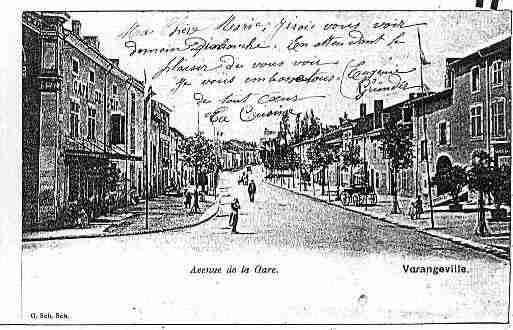 Ma chère Marie, J'irais vous voir
demain Dimanche. En attendant le
plaisir de vous voir
Je vous embrasse tous.
de tout cœur
Ta Cousine
CAFÉ
Avenue de la Gare.
Varangeville.
G. Sch. Sch.